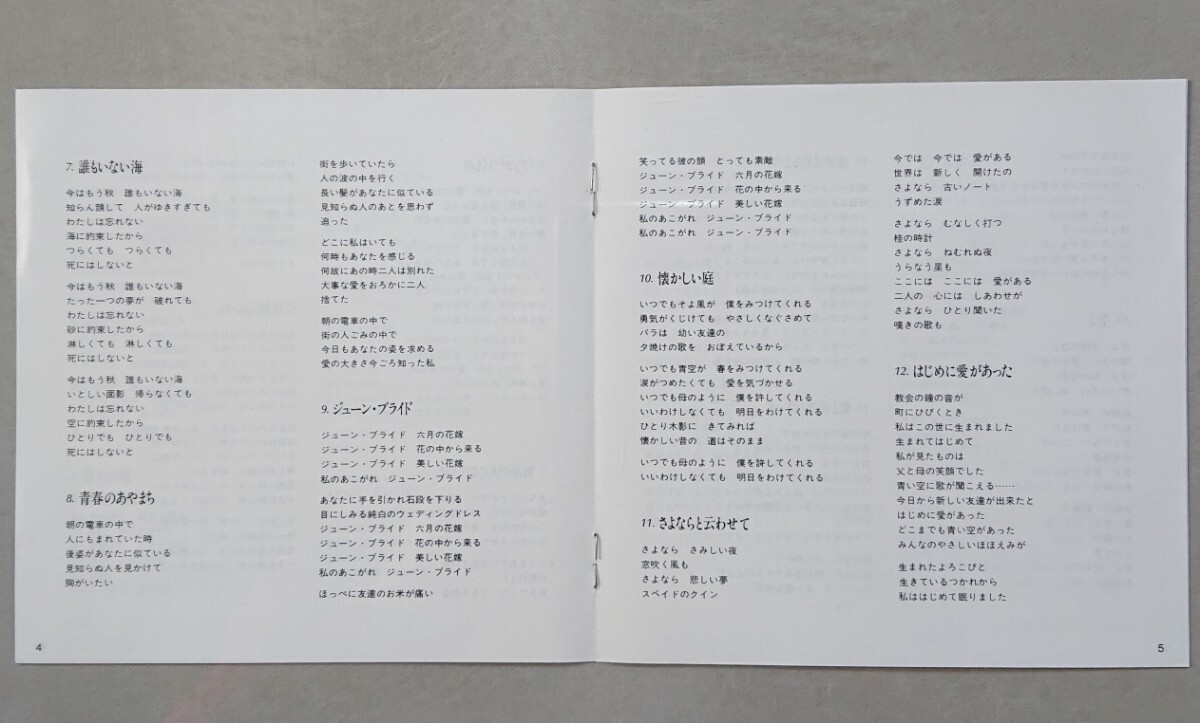 7. 誰もいない海
今はもう秋　誰もいない海
知らん顔して　人がゆきすぎても
わたしは忘れない
海に約束したから
つらくても　つらくても
死にはしないと
今はもう秋　誰もいない海
たった一つの夢が　破れても
わたしは忘れない
砂に約束したから
淋しくても　淋しくても
死にはしないと
今はもう秋　誰もいない海
いとしい面影　帰らなくても
わたしは忘れない
空に約束したから
ひとりでも　ひとりでも
死にはしないと
8. 青春のあやまち
朝の電車の中で
人にもまれていた時
後姿があなたに似ている
見知らぬ人を見かけて
胸がいたい
街を歩いていたら
人の波の中を行く
長い髪があなたに似ている
見知らぬ人のあとを思わず
追った
どこに私はいても
何時もあなたを感じる
何故にあの時二人は別れた
大事な愛をおろかに二人
捨てた
朝の電車の中で
街の人ごみの中で
今日もあなたの姿を求める
愛の大きさ今ごろ知った私
9. ジューン・ブライド
ジューン・ブライド　六月の花嫁
ジューン・ブライド　花の中から来る
ジューン・ブライド　美しい花嫁
私のあこがれ　ジューン・ブライド
あなたに手を引かれ石段を下りる
目にしみる純白のウェディングドレス
ジューン・ブライド　六月の花嫁
ジューン・ブライド　花の中から来る
ジューン・ブライド　美しい花嫁
私のあこがれ　ジューン・ブライド
ほっぺに友達のお米が痛い
4
笑ってる彼の顔　とっても素敵
ジューン・ブライド　六月の花嫁
ジューン・ブライド　花の中から来る
ジューン・ブライド　美しい花嫁
私のあこがれ　ジューン・ブライド
私のあこがれ　ジューン・ブライド
10. 懐かしい庭
いつでもそよ風が　僕をみつけてくれる
勇気がくじけても　やさしくなぐさめて
バラは　幼い友達の
夕焼けの歌を　おぼえているから
いつでも青空が　春をみつけてくれる
涙がつめたくても　愛を気づかせる
いつでも母のように　僕を許してくれる
いいわけしなくても　明日をわけてくれる
ひとり木影に　きてみれば
懐かしい昔の　道はそのまま
いつでも母のように　僕を許してくれる
いいわけしなくても　明日をわけてくれる
11. さよならと云わせて
さよなら　さみしい夜
窓吹く風も
さよなら　悲しい夢
スペイドのクイン
今では　今では　愛がある
世界は　新しく　開けたの
さよなら　古いノート
うずめた涙
さよなら　むなしく打つ
柱の時計
さよなら　ねむれぬ夜
うらなう星も
ここには　ここには　愛がある
二人の　心には　しあわせが
さよなら　ひとり聞いた
嘆きの歌も
12. はじめに愛があった
教会の鐘の音が
町にひびくとき
私はこの世に生まれました
生まれてはじめて
私が見たものは
父と母の笑顔でした
青い空に歌が聞こえる……
今日から新しい友達が出来たと
はじめに愛があった
どこまでも青い空があった
みんなのやさしいほほえみが
生まれたよろこびと
生きているつかれから
私ははじめて眠りました
5